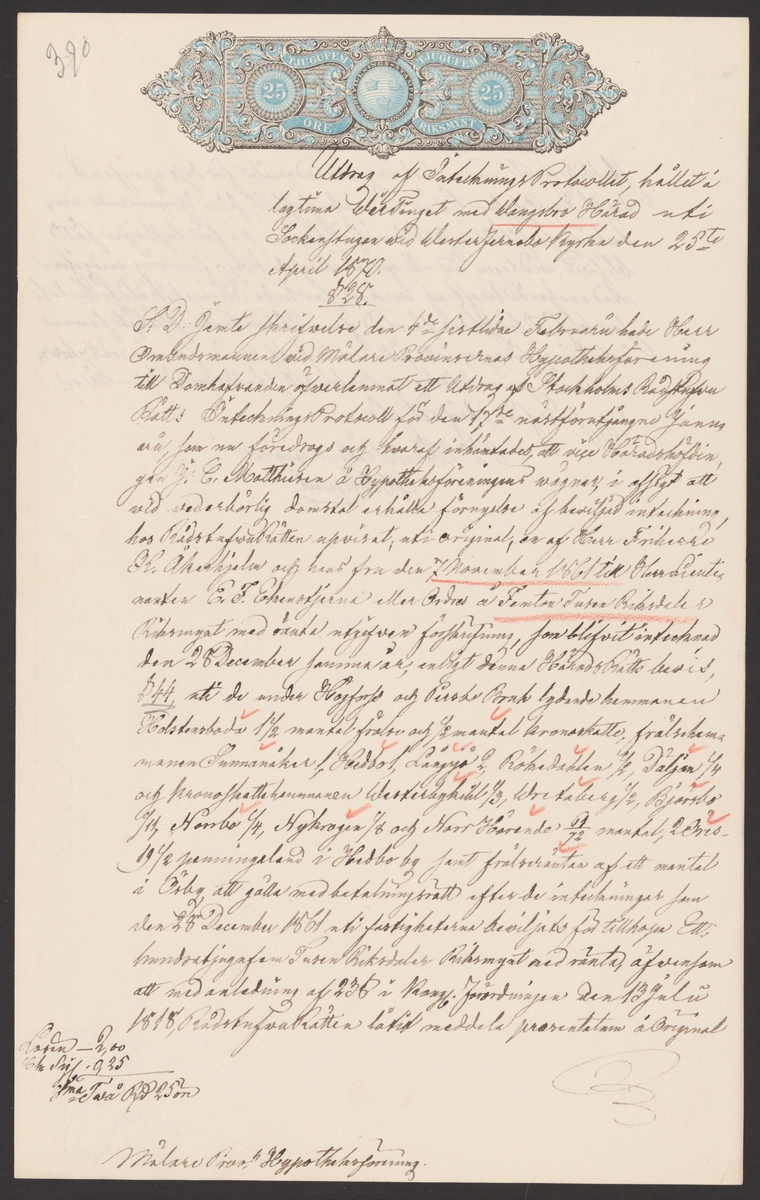 390
TJUGUFEM TJUGUFEM
25 25
ÖRE RIKSMYNT
Utdrag af InteckningsProtocollet, hållet å
lagtima WårTinget med Wangsbro Härad uti
Sockenstugan wid Wester Fernebo Kyrka den 25te
April 1870.
§ 28.
S. D. Jemte skrifwelse den 4de sistlidne Februari hade Herr
Ombudsmannen wid Mälare Provinsernas Hypotheksförening
till Domhafvanden öfwerlemnat ett Utdrag af Stockholms Rådstufwu
Rätts Intecknings Protocoll för den 17de nästförutgångne Janu
ari, som nu föredrogs och hvaraf inhämtades, att vice Häradshöfdin
gen J. C. Matthiesen å Hypotheksföreningens wägnar, i afsigt att
vid vederbörlig domstol erhålla förnyelse af bewiljad inteckning,
hos RådstufwuRätten upvisat, uti original, en af Herr Friherre
K. Åkerhjelm och hans fru den 7 November 1861 till Herr Lieute
nanten E. F. Ehrenstjerna eller Ordres å Femton Tusen Riksdaler
Riksmynt med ränta utgifven förskrifning, som blifvit intecknad
den 28 December samma år, enligt denna HäradsRätts bevis,
§ 44, uti de under Högfors och Persbo Bruk lydande hemmanen
Holstensbode 1 1/2 mantal frälse och 1/2 mantal kronoskatte, frälsehem-
manen Sunnanåker 1, Hedbo 1, Långsjö 2, Röhedahlen 1/2, Däljan 1/4
och kronoskattehemmanen Westerbykihl 1/3, Wretaberg 1/2, Björsbo
1/4, Norrbo 1/4, Nykrogen 1/8 och Norr Hörende 61/72 mantal, 2 öres
19 1/2 penningeland i Hedbo by samt frälseräntan af ett mantal
i Ösby, att gälla med betalningsrätt efter de inteckningar som
den 28 December 1861 uti fastigheterna beviljats för tillhopa Ett
hundratjugufem Tusen Riksdaler Riksmynt med ränta, äfvensom
att med anledning af 23 § i Kongl. Förordningen den 13 Juli
1818, RådstufwuRätten låtit meddela præsentatum å Original
Lösen – 2,00
Ch. Sig. – 0,25
Sma Två Rdr 25 öre
Mälare Prov.s Hypotheksförening.